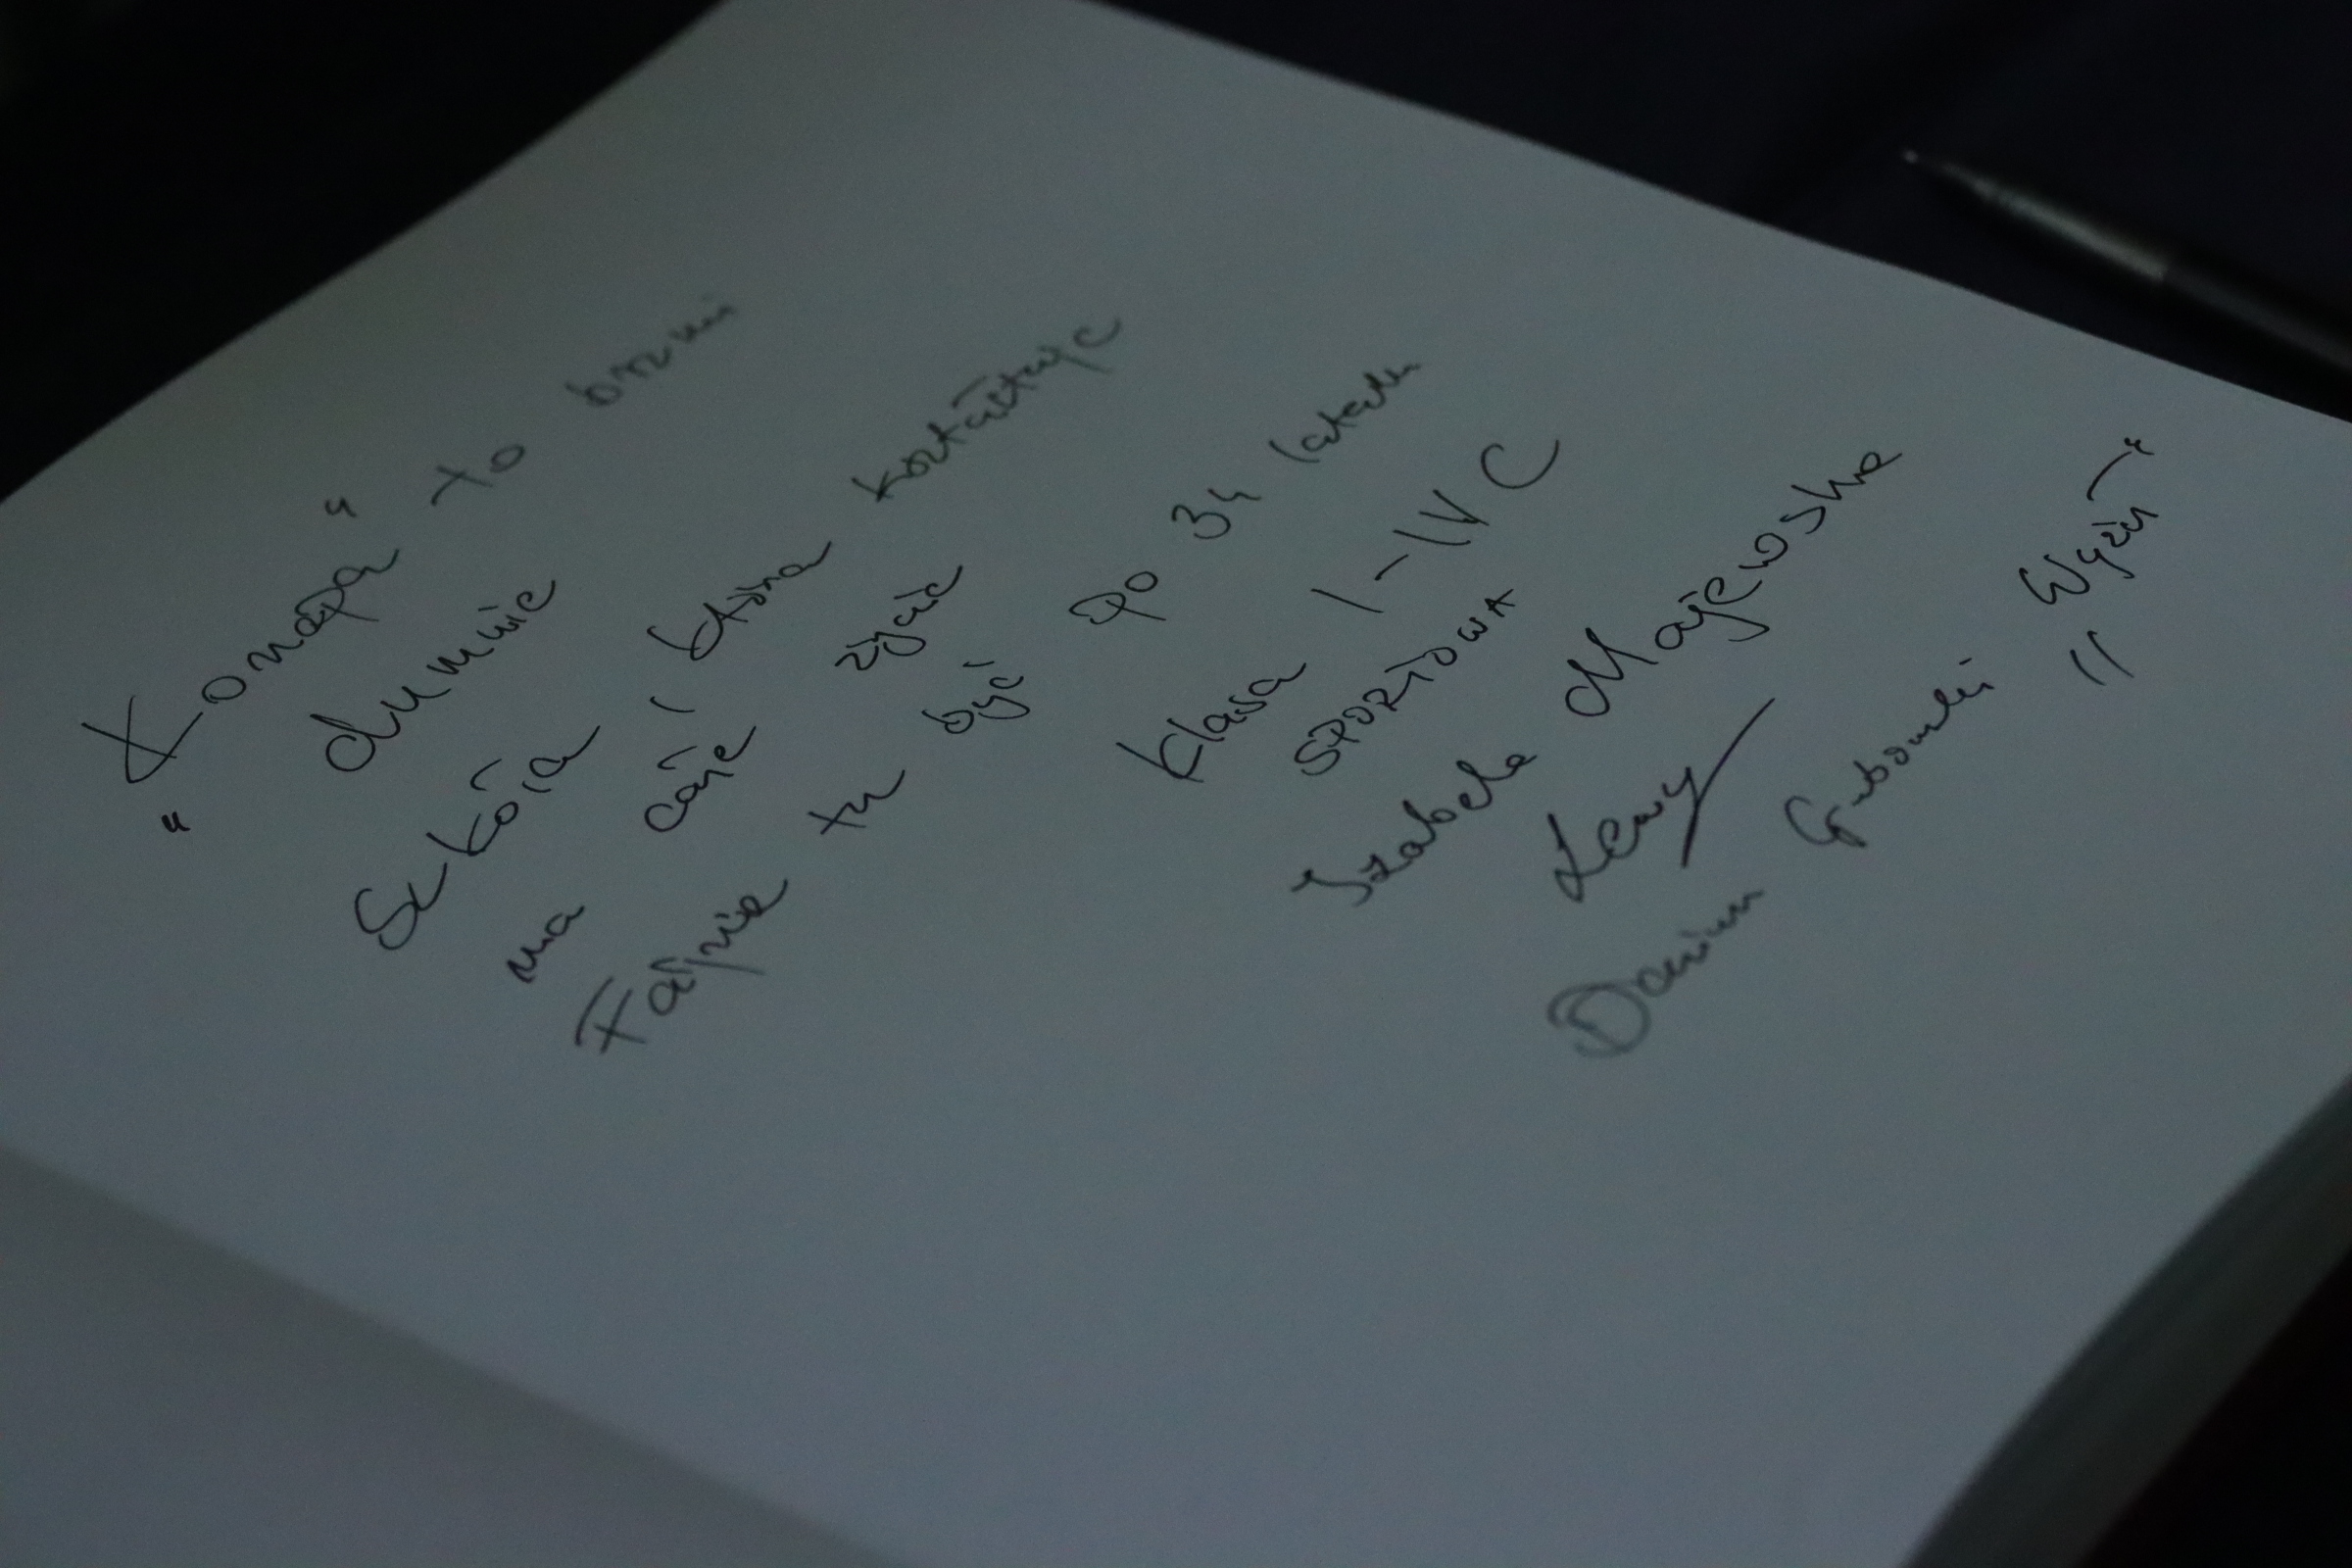 "Konopa" to brzmi
dumnie
Szkoła, która kształtuje
na całe życie
Fajnie tu być po 34 latach
Klasa I-IV C
SPORTOWA
Izabela Majewska
Damian "Wyży"